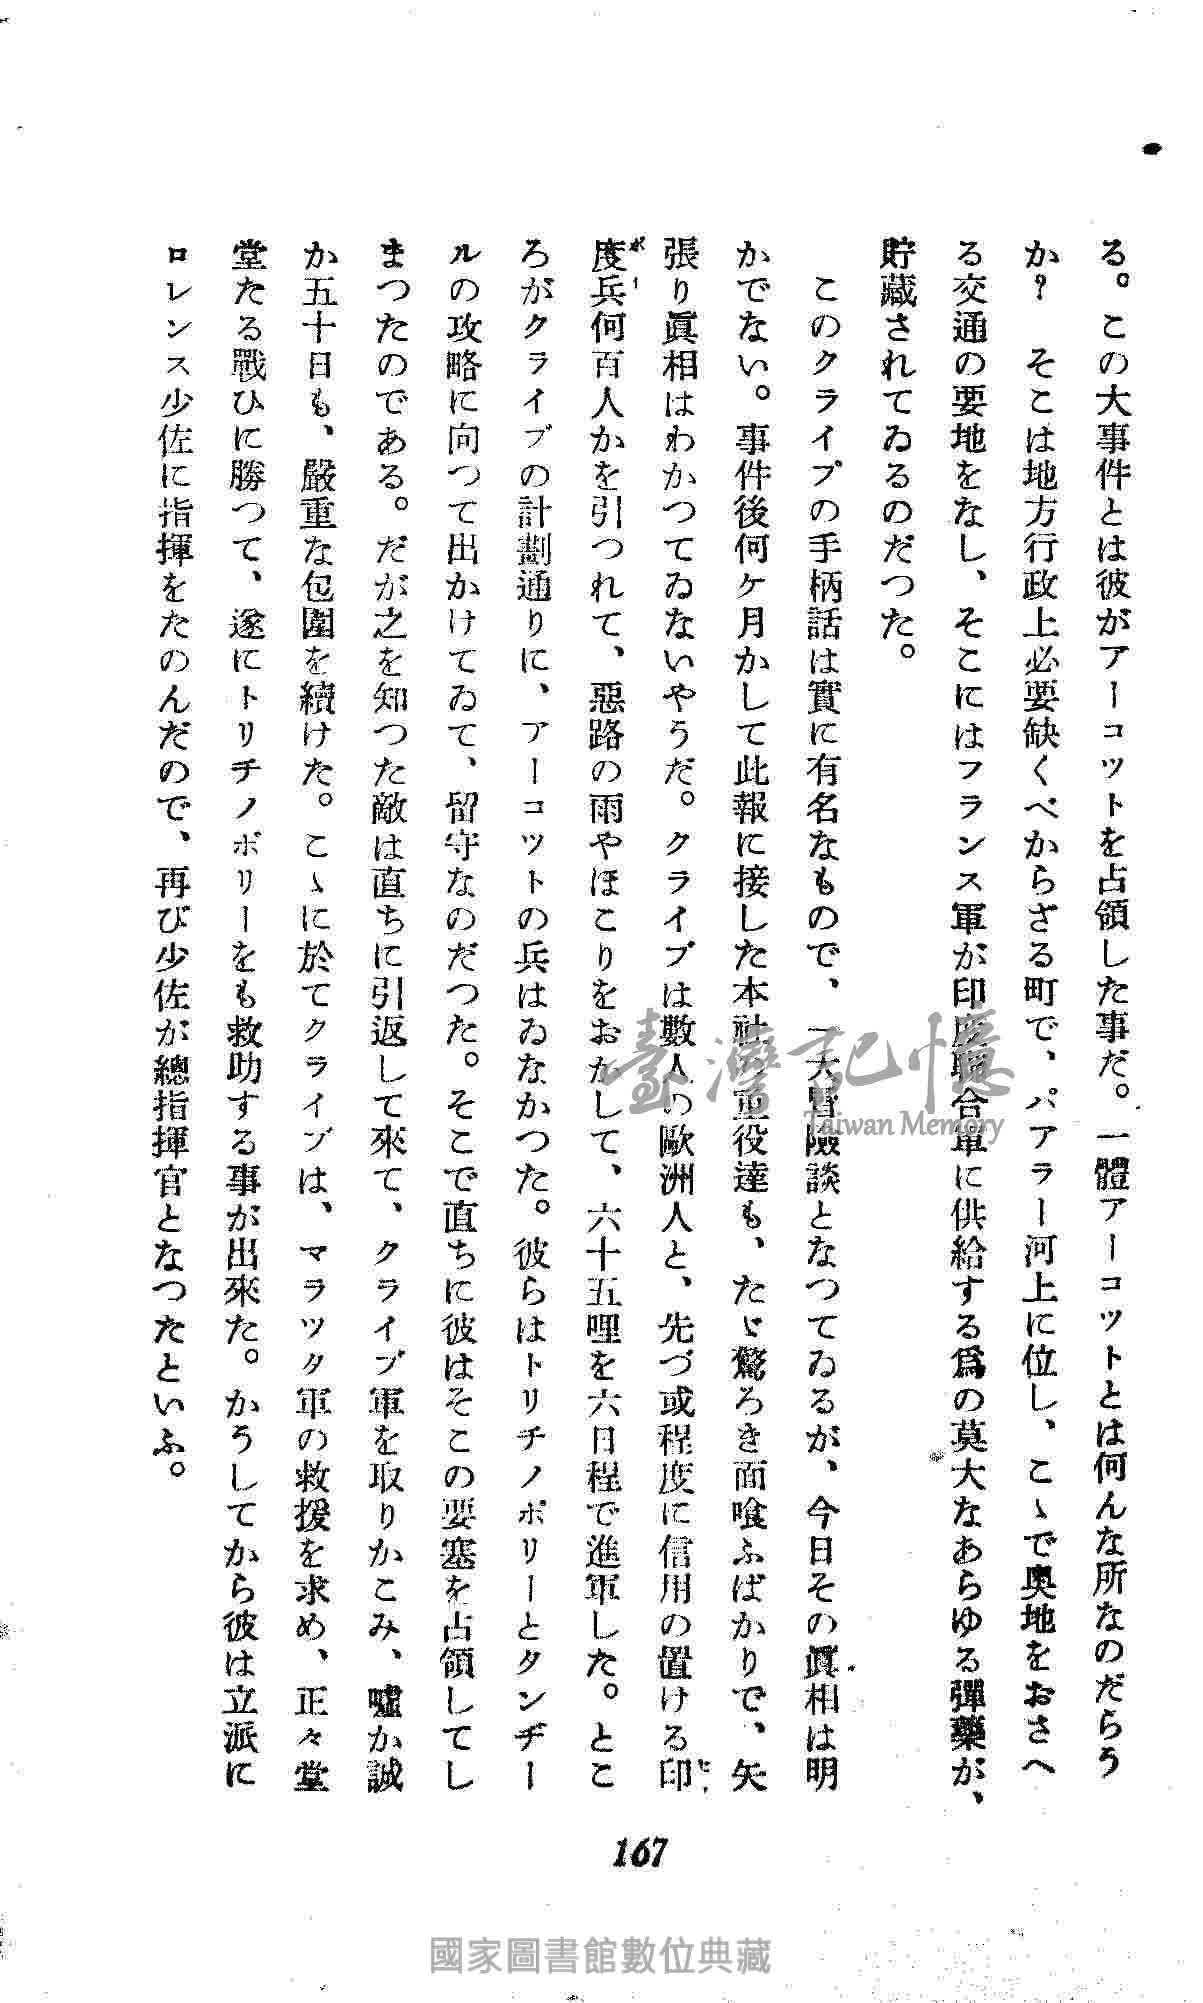 る。この大事件とは彼がアーコツトを占領した事だ。一體アーコツトとは何んな所なのだらう
か？　そこは地方行政上必要缺くべからざる町で、パアラー河上に位し、こゝで奥地をおさへ
る交通の要地をなし、そこにはフランス軍が印度聯合軍に供給する爲の莫大なあらゆる彈藥が、
貯藏されてゐるのだつた。
　このクライブの手柄話は實に有名なもので、一大冒險談となつてゐるが、今日その眞相は明
かでない。事件後何ケ月かして此報に接した本社の重役達も、たゞ驚ろき面喰ふばかりで、矢
張り眞相はわかつてゐないやうだ。クライブは數人の歐洲人と、先づ或程度に信用の置ける印
度兵何百人かを引つれて、惡路の雨やほこりをおかして、六十五哩を六日程で進軍した。とこ
ろがクライブの計劃通りに、アーコツトの兵はゐなかつた。彼らはトリチノポリーとタンヂー
ルの攻略に向つて出かけてゐて、留守なのだつた。そこで直ちに彼はそこの要塞を占領してし
まつたのである。だが之を知つた敵は直ちに引返して來て、クライブ軍を取りかこみ、噓か誠
か五十日も、嚴重な包圍を續けた。こゝに於てクライブは、マラツタ軍の救援を求め、正々堂
堂たる戰ひに勝つて、遂にトリチノポリーをも救助する事が出來た。かうしてから彼は立派に
ロレンス少佐に指揮をたのんだので、再び少佐が總指揮官となつたといふ。
167
臺灣記憶
Taiwan Memory
國家圖書館數位典藏